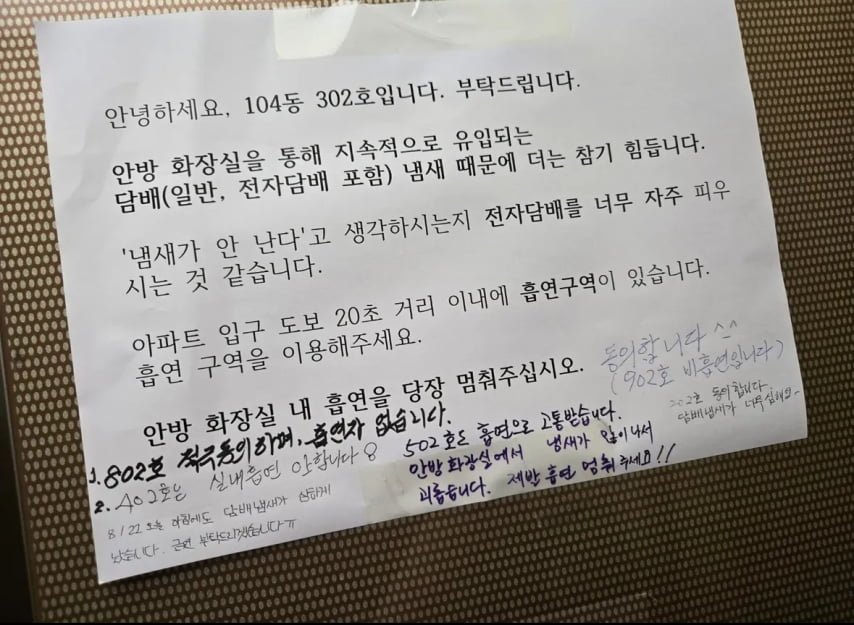 안녕하세요, 104동 302호입니다. 부탁드립니다.
안방 화장실을 통해 지속적으로 유입되는
담배(일반, 전자담배 포함) 냄새 때문에 더는 참기 힘듭니다.
'냄새가 안 난다'고 생각하시는지 전자담배를 너무 자주 피우
시는 것 같습니다.
아파트 입구 도보 20초 거리 이내에 흡연구역이 있습니다.
흡연 구역을 이용해주세요.
안방 화장실 내 흡연을 당장 멈춰주십시오.
동의합니다 ^^
(902호 비흡연입니다)
202호 동의합니다
담배냄새가 너무 심해요~
1. 802호 적극동의하며, 흡연자 없습니다.
2. 402호는 실내흡연 안합니다
8/22 오늘 아침에도 담배냄새가 심하게
났습니다. 금연 부탁드리겠습니다ㅠ
502호도 흡연으로 고통받습니다.
안방 화장실에서 냄새가 많이 나서
괴롭습니다. 제발 흡연 멈춰 주세요!!